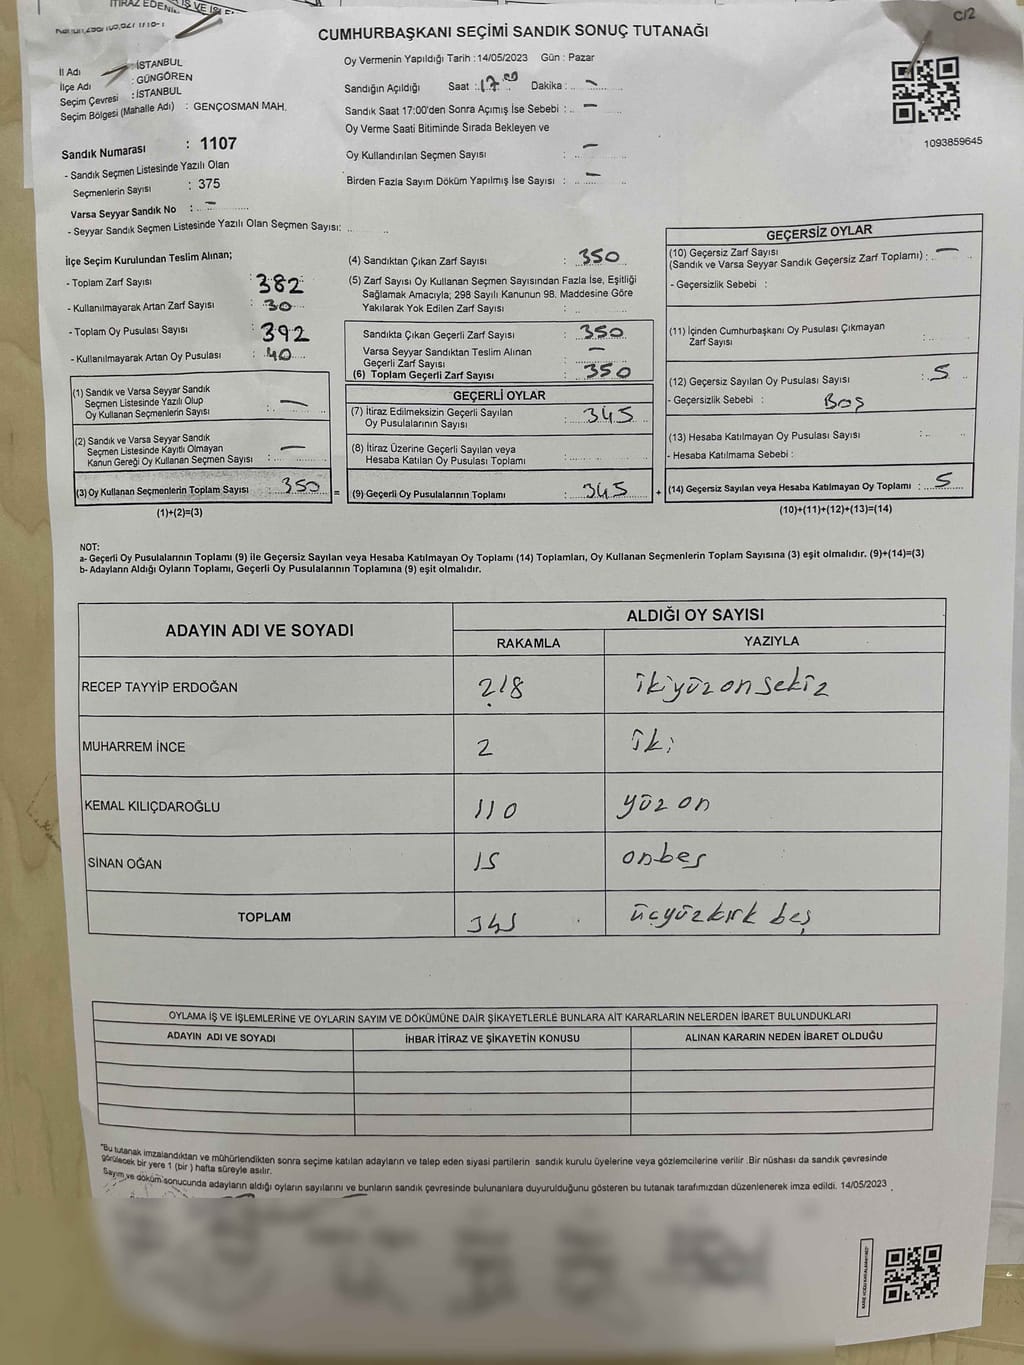 CUMHURBAŞKANI SEÇİMİ SANDIK SONUÇ TUTANAĞI
C/2
1093859645
İl Adı : İSTANBUL
İlçe Adı : GÜNGÖREN
Seçim Çevresi : İSTANBUL
Seçim Bölgesi (Mahalle Adı) : GENÇOSMAN MAH.
Sandık Numarası : 1107
- Sandık Seçmen Listesinde Yazılı Olan
Seçmenlerin Sayısı : 375
Varsa Seyyar Sandık No : -
- Seyyar Sandık Seçmen Listesinde Yazılı Olan Seçmen Sayısı:
Oy Vermenin Yapıldığı Tarih : 14/05/2023 Gün : Pazar
Sandığın Açıldığı Saat : 17.00 Dakika : -
Sandık Saat 17:00'den Sonra Açımış İse Sebebi : -
Oy Verme Saati Bitiminde Sırada Bekleyen ve
Oy Kullandırılan Seçmen Sayısı : -
Birden Fazla Sayım Döküm Yapılmış İse Sayısı : -
İlçe Seçim Kurulundan Teslim Alınan;
- Toplam Zarf Sayısı : 382
- Kullanılmayarak Artan Zarf Sayısı : 30
- Toplam Oy Pusulası Sayısı : 392
- Kullanılmayarak Artan Oy Pusulası : 40
(1) Sandık ve Varsa Seyyar Sandık
Seçmen Listesinde Yazılı Olup
Oy Kullanan Seçmenlerin Sayısı : -
(2) Sandık ve Varsa Seyyar Sandık
Seçmen Listesinde Kayıtlı Olmayan
Kanun Gereği Oy Kullanan Seçmen Sayısı : -
(3) Oy Kullanan Seçmenlerin Toplam Sayısı : 350 =
(1)+(2)=(3)
(4) Sandıktan Çıkan Zarf Sayısı : 350
(5) Zarf Sayısı Oy Kullanan Seçmen Sayısından Fazla İse, Eşitliği
Sağlamak Amacıyla; 298 Sayılı Kanunun 98. Maddesine Göre
Yakılarak Yok Edilen Zarf Sayısı :
Sandıkta Çıkan Geçerli Zarf Sayısı : 350
Varsa Seyyar Sandıktan Teslim Alınan
Geçerli Zarf Sayısı : -
(6) Toplam Geçerli Zarf Sayısı : 350
GEÇERLİ OYLAR
(7) İtiraz Edilmeksizin Geçerli Sayılan
Oy Pusulalarının Sayısı : 345
(8) İtiraz Üzerine Geçerli Sayılan veya
Hesaba Katılan Oy Pusulası Toplamı :
(9) Geçerli Oy Pusulalarının Toplamı : 345 +
GEÇERSİZ OYLAR
(10) Geçersiz Zarf Sayısı
(Sandık ve Varsa Seyyar Sandık Geçersiz Zarf Toplamı) : -
- Geçersizlik Sebebi :
(11) İçinden Cumhurbaşkanı Oy Pusulası Çıkmayan
Zarf Sayısı :
(12) Geçersiz Sayılan Oy Pusulası Sayısı : 5
- Geçersizlik Sebebi : Boş
(13) Hesaba Katılmayan Oy Pusulası Sayısı :
- Hesaba Katılmama Sebebi :
(14) Geçersiz Sayılan veya Hesaba Katılmayan Oy Toplamı : 5
(10)+(11)+(12)+(13)=(14)
NOT:
a- Geçerli Oy Pusulalarının Toplamı (9) ile Geçersiz Sayılan veya Hesaba Katılmayan Oy Toplamı (14) Toplamları, Oy Kullanan Seçmenlerin Toplam Sayısına (3) eşit olmalıdır. (9)+(14)=(3)
b- Adayların Aldığı Oyların Toplamı, Geçerli Oy Pusulalarının Toplamına (9) eşit olmalıdır.
ADAYIN ADI VE SOYADI ALDIĞI OY SAYISI
RAKAMLA YAZIYLA
RECEP TAYYİP ERDOĞAN 218 ikiyüz onsekiz
MUHARREM İNCE 2 iki
KEMAL KILIÇDAROĞLU 110 yüz on
SİNAN OĞAN 15 onbeş
TOPLAM 345 üçyüzkırk beş
OYLAMA İŞ VE İŞLEMLERİNE VE OYLARIN SAYIM VE DÖKÜMÜNE DAİR ŞİKAYETLERLE BUNLARA AİT KARARLARIN NELERDEN İBARET BULUNDUKLARI
ADAYIN ADI VE SOYADI İHBAR İTİRAZ VE ŞİKAYETİN KONUSU ALINAN KARARIN NEDEN İBARET OLDUĞU
"Bu tutanak imzalandıktan ve mühürlendikten sonra seçime katılan adayların ve talep eden siyasi partilerin sandık kurulu üyelerine veya gözlemcilerine verilir .Bir nüshası da sandık çevresinde
görülecek bir yere 1 (bir ) hafta süreyle asılır.
Sayım ve döküm sonucunda adayların aldığı oyların sayılarını ve bunların sandık çevresinde bulunanlara duyurulduğunu gösteren bu tutanak tarafımızdan düzenlenerek imza edildi. 14/05/2023